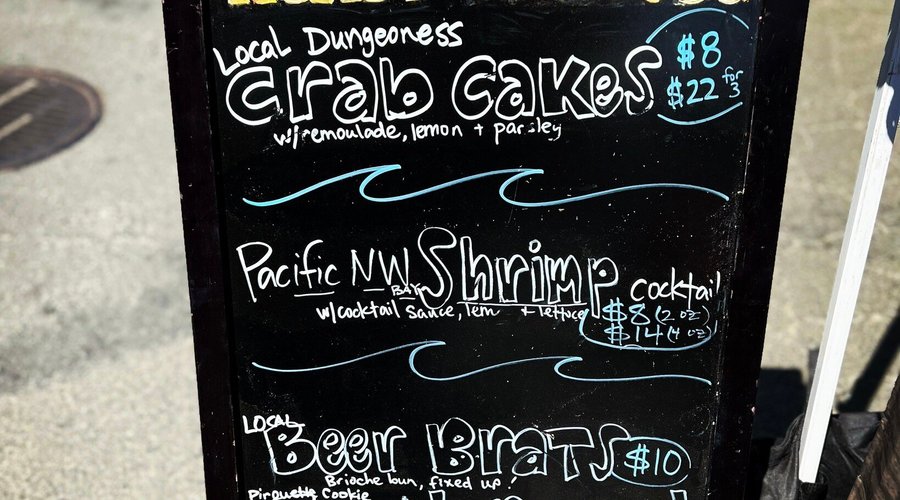 Local Dungeoness
Crab Cakes
$8
$22 for 3
w/remoulade, lemon + parsley
Pacific NW Bay Shrimp cocktail
w/cocktail sauce, lem + lettuce
$8 (2 oz)
$14 (4 oz)
LOCAL
Beer Brats $10
Brioche bun, fixed up!
Pirouette Cookie